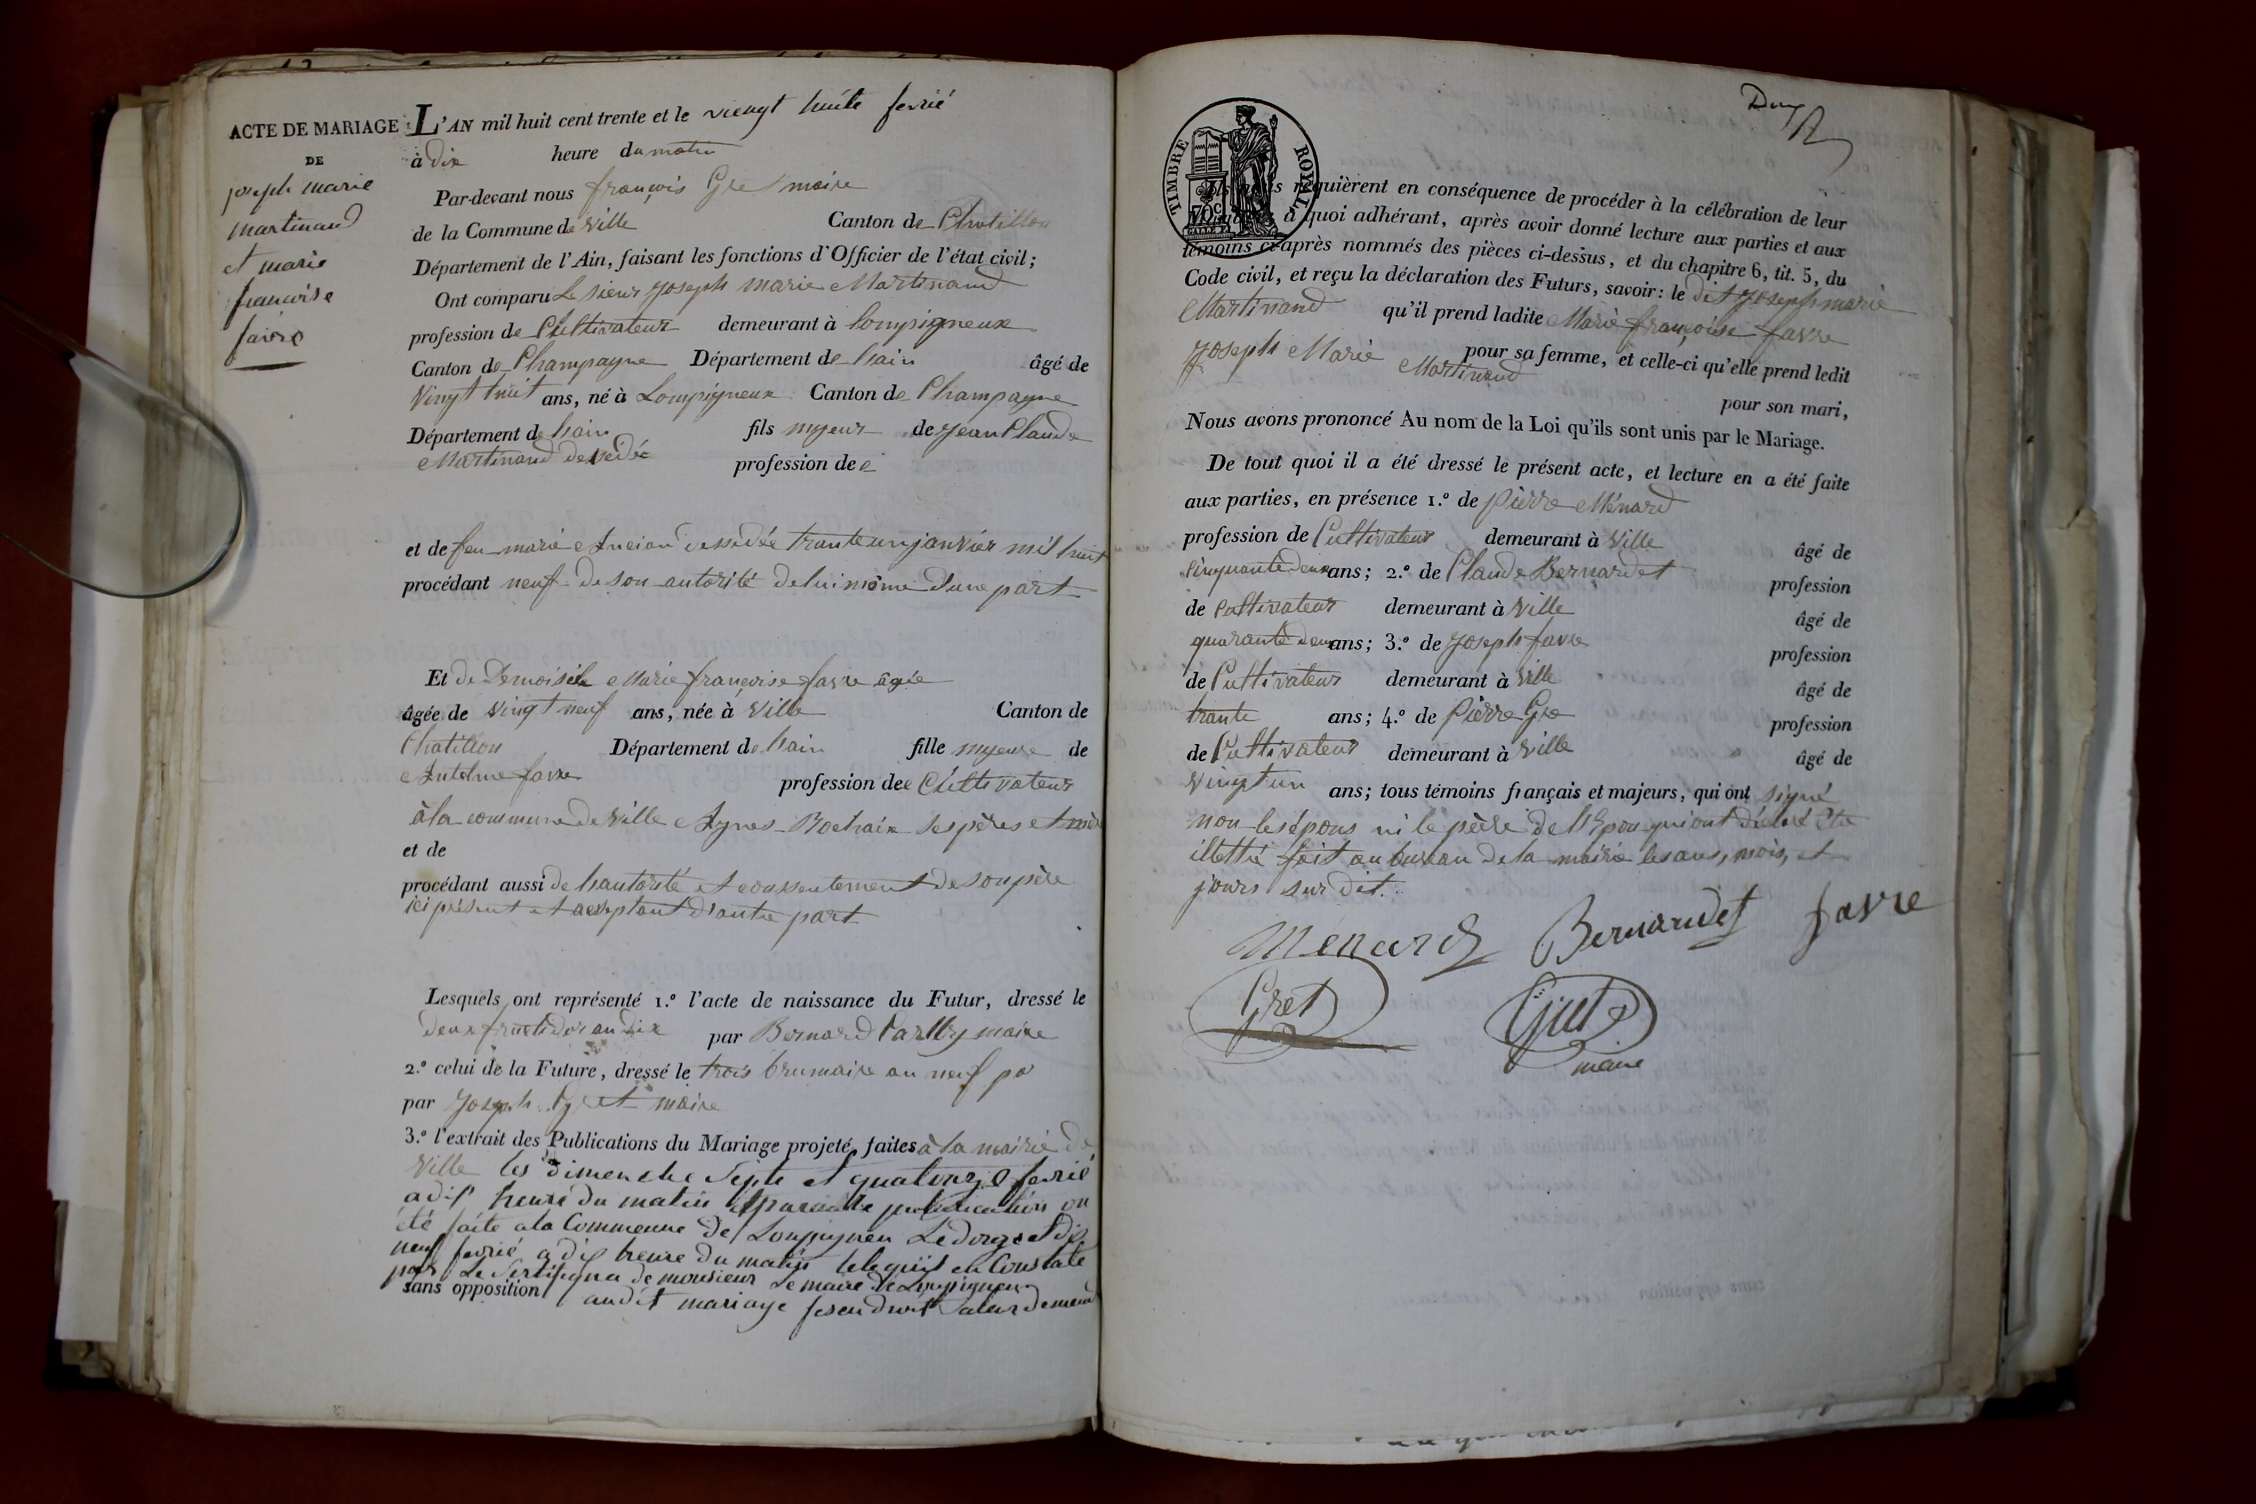 ACTE DE MARIAGE
DE
joseph marie
martinand
et marie
francoise
favre
L'AN mil huit cent trente et le viengt huite fevrié
à dix heure du matin
Par-devant nous françois Gret maire
de la Commune de Ville Canton de Chatillon
Département de l'Ain, faisant les fonctions d'Officier de l'état civil;
Ont comparu Le sieur Joseph marie Martinand
profession de Cultivateur demeurant à Lompigneux
Canton de Champagne Département de Lain âgé de
Vingt huit ans, né à Lompigneux Canton de Champagne
Département de Lain fils mjeur de Jean Claude
Martinand
profession de
et de feu marie trante un janvier mil huit
procédant neuf de son autorité de lui même d'une part
Et de Demoiselle Marie françoise favre âgée
âgée de vingt neuf ans, née à Ville Canton de
Chatillon Département de Lain fille mjeure de
Antelme favre profession de Cultivateur
à la commune de Ville Agnes ses pères et mère
et de
procédant aussi de l'autorité et consentement de son père
ici présent et acceptant d'autre part
Lesquels ont représenté 1.º l'acte de naissance du Futur, dressé le
deux fructidor an dix par Bernard maire
2.º celui de la Future, dressé le trois brumaire an neuf
par Joseph gret maire
3.º l'extrait des Publications du Mariage projeté, faites à la mairie de
Ville les dimenche septe et quatorze fevrié
a dis heure du matin publication on
été faite a la Commenne de et dis
neuf fevrié a dis heure du matin Constate
par Le de monsieur Le maire de
sans opposition audit mariage
TIMBRE ROYAL
70c
Ils nous requièrent en conséquence de procéder à la célébration de leur
à quoi adhérant, après avoir donné lecture aux parties et aux
témoins ci-après nommés des pièces ci-dessus, et du chapitre 6, tit. 5, du
Code civil, et reçu la déclaration des Futurs, savoir: le dit Joseph marie
Martinand qu'il prend ladite Marie françoise favre
pour sa femme, et celle-ci qu'elle prend ledit
Joseph Marie Martinand
pour son mari,
Nous avons prononcé Au nom de la Loi qu'ils sont unis par le Mariage.
De tout quoi il a été dressé le présent acte, et lecture en a été faite
aux parties, en présence 1.º de Pièrre Ménard
profession de Cultivateur demeurant à Ville âgé de
cinquante deux ans; 2.º de Claude Bernardet profession
de Cultivateur demeurant à Ville âgé de
quarante deux ans; 3.º de Joseph favre profession
de Cultivateur demeurant à Ville âgé de
trante ans; 4.º de Pièrre Gre profession
de Cultivateur demeurant à Ville âgé de
vingt un ans; tous témoins français et majeurs, qui ont signé
non les époux ni le père de qui ont
fait au bureau de la mairie les ans, mois, et
jours sur dit.
Menard Bernardet favre
Gret Gret
maire